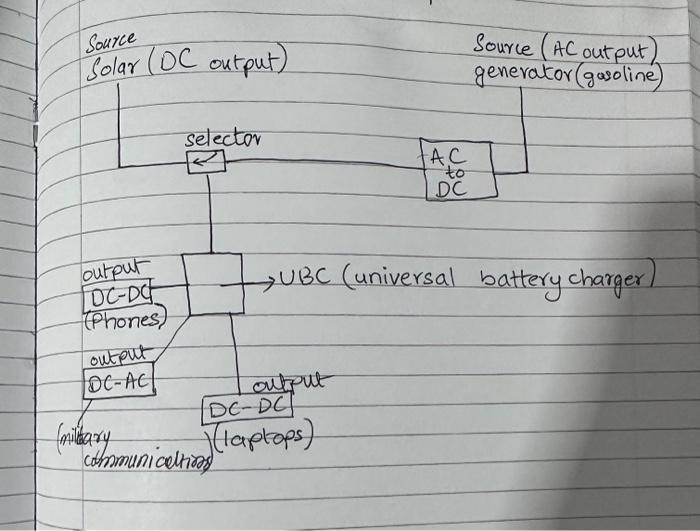 Source
Solar (DC output)
Source (AC output)
generator (gasoline)
selector
AC
to
DC
output
DC-DC
(Phones)
UBC (universal battery charger)
output
DC-AC
output
DC-DC
(laptops)
(military